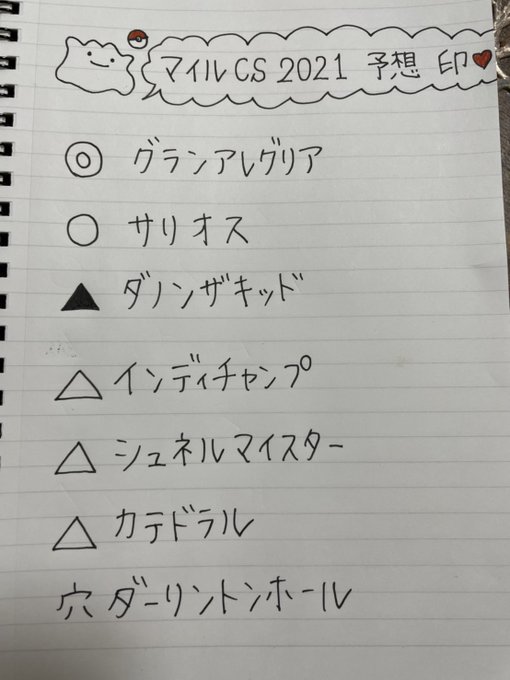 マイルCS 2021 予想 印♥
◎ グランアレグリア
○ サリオス
▲ ダノンザキッド
△ インディチャンプ
△ シュネルマイスター
△ カテドラル
穴 ダーリントンホール